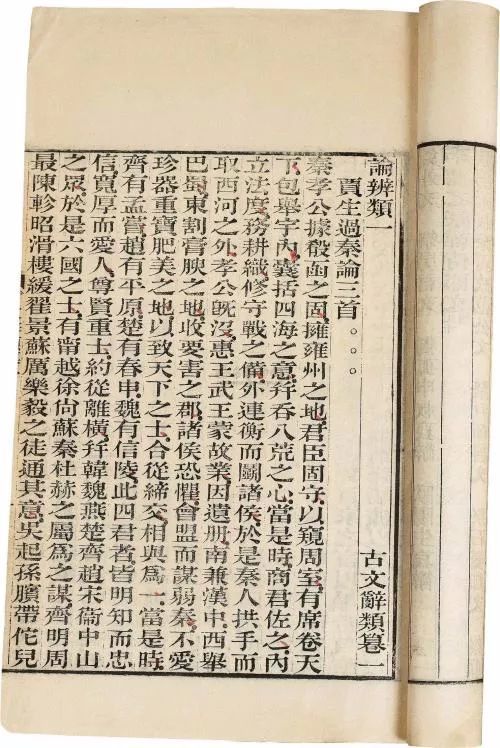 論辨類一 古文辭類篹一
賈生過秦論三首 。。。
秦孝公據殽函之固擁雍州之地君臣固守以窺周室有席卷天
下包舉宇內囊括四海之意幷吞八荒之心當是時商君佐之內
立法度務耕織修守戰之備外連衡而鬭諸侯於是秦人拱手而
取西河之外孝公旣沒惠王武王蒙故業因遺册南兼漢中西舉
巴蜀東割膏腴之地收要害之郡諸侯恐懼會盟而謀弱秦不愛
珍器重寶肥美之地以致天下之士合從締交相與爲一當是時
齊有孟嘗趙有平原楚有春申魏有信陵此四君者皆明知而忠
信寬厚而愛人尊賢重士約從離橫幷韓魏燕楚齊趙宋衞中山
之眾於是六國之士有甯越徐尙蘇秦杜赫之屬爲之謀齊明周
最陳軫昭滑樓緩翟景蘇厲樂毅之徒通其意吳起孫臏帶佗兒